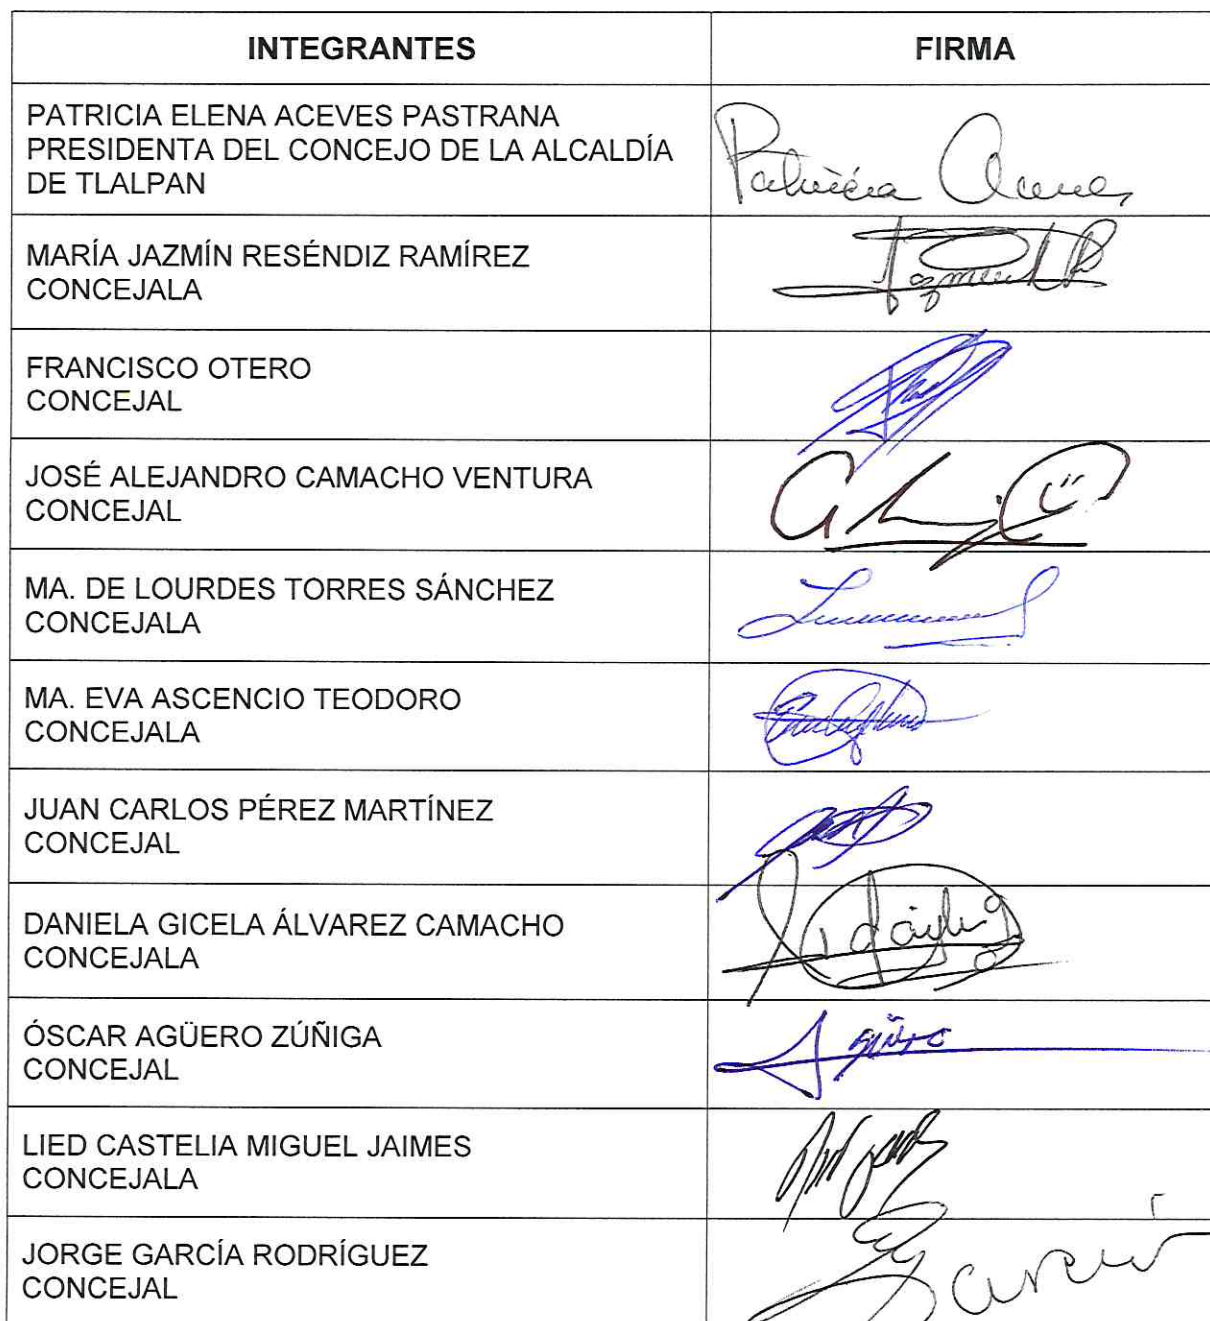 INTEGRANTES FIRMA
PATRICIA ELENA ACEVES PASTRANA
PRESIDENTA DEL CONCEJO DE LA ALCALDÍA
DE TLALPAN
Patricia Aceves
MARÍA JAZMÍN RESÉNDIZ RAMÍREZ
CONCEJALA
FRANCISCO OTERO
CONCEJAL
JOSÉ ALEJANDRO CAMACHO VENTURA
CONCEJAL
MA. DE LOURDES TORRES SÁNCHEZ
CONCEJALA
MA. EVA ASCENCIO TEODORO
CONCEJALA
JUAN CARLOS PÉREZ MARTÍNEZ
CONCEJAL
DANIELA GICELA ÁLVAREZ CAMACHO
CONCEJALA
ÓSCAR AGÜERO ZÚÑIGA
CONCEJAL
LIED CASTELIA MIGUEL JAIMES
CONCEJALA
JORGE GARCÍA RODRÍGUEZ
CONCEJAL
García